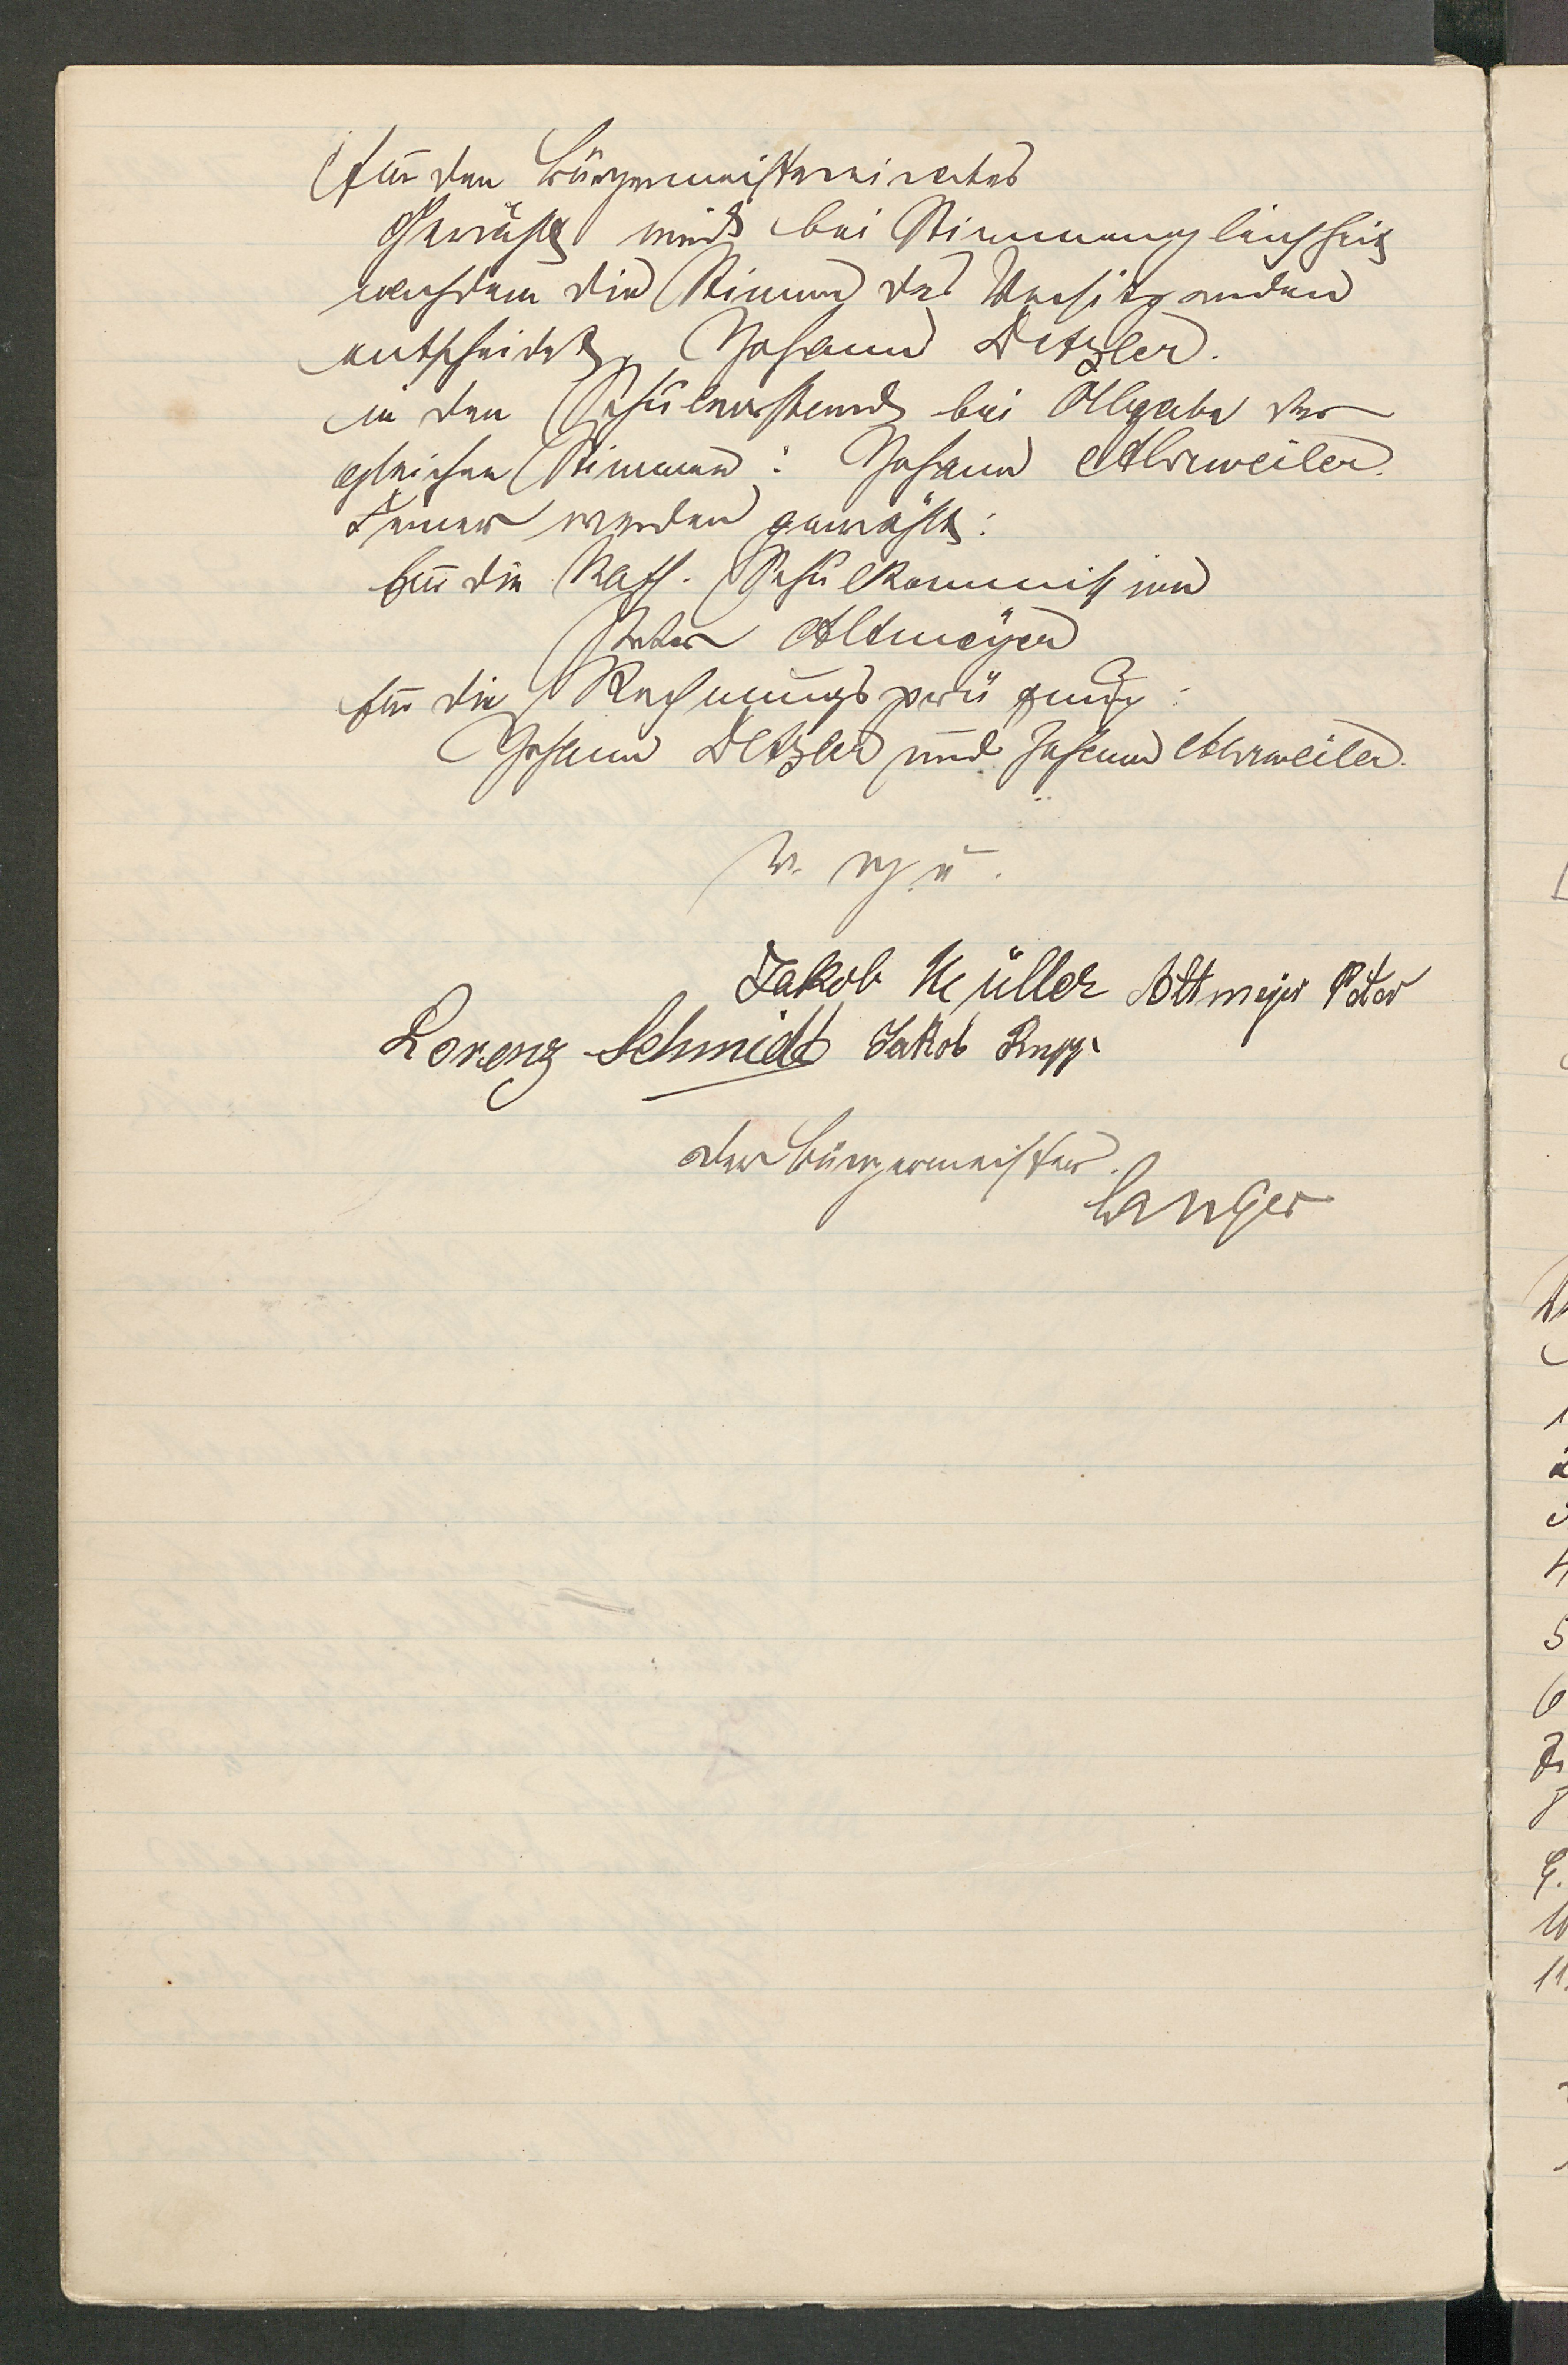 für den Bürgermeistereirates
Gewählt wird bei Stimmengleichheit
nachdem die Stimme des Vorsitzenden
entscheidet, Johann Detzler.
in den Schulvorstand bei Abgabe der
gleichen Stimmen: Johann Ahrweiler.
Ferner werden gewählt:
für die Kath. Schulkommission
Peter Altmeyer
für die Rechnungsprüfung:
Johann Detzler und Johann Ahrweiler.
v. g. u.
Jakob Müller Altmeyer Peter
Lorenz Schmidt Jakob Rupp
der Bürgermeister.
Langer
1
2
3
4
5
6
7.
8
9.
10
11.